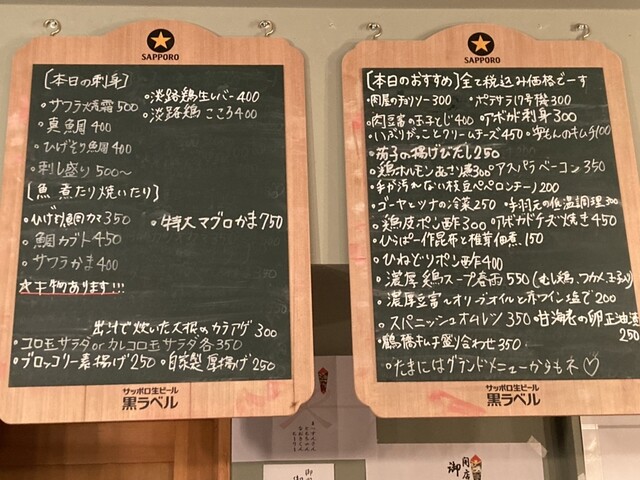 SAPPORO
[本日の刺身]
・サワラ焼霜 500
・真鯛 400
・ひげそり鯛 400
・刺し盛り 500〜
・淡路鶏生レバー 400
・淡路鶏こころ 400
[魚 煮たり焼いたり]
・ひげそり鯛カマ 350
・特大マグロかま 750
・鯛カブト 450
・サワラかま 400
☆干物あります!!!
出汁で炊いた大根のカラアゲ 300
・コロモサラダorカレコロモサラダ各350
・ブロッコリー素揚げ250
・自家製厚揚げ250
サッポロ生ビール
黒ラベル
SAPPORO
[本日のおすすめ]全て税込み価格でーす
・肉屋のチョリソー 300
・ポテサラ17号機 300
・肉豆富の玉子とじ 400
・アボカド刺身 300
・いぶりがっことクリームチーズ 450
・茄子の揚げびたし 250
・鶏ホルモン
・アスパラベーコン 350
・手が汚れない枝豆ペペロンチーノ 200
・ゴーヤとツナの冷菜 250
・手羽元の低温調理 300
・鶏皮ポン酢 300
・アボカドチーズ焼き 450
・ひらぱー作昆布と椎茸佃煮 150
・ひねどりポン酢 400
・濃厚鶏スープ春雨 550 (むし鶏、ワカメ、玉子入り)
・濃厚豆富〜オリーブオイルと赤ワイン塩で 200
・スパニッシュオムレツ 350
・甘海老の卵王油漬
250
・鶴橋キムチ盛り合わせ 350
・たまにはグランドメニューからもネ♡
サッポロ生ビール
黒ラベル
御
御
開店